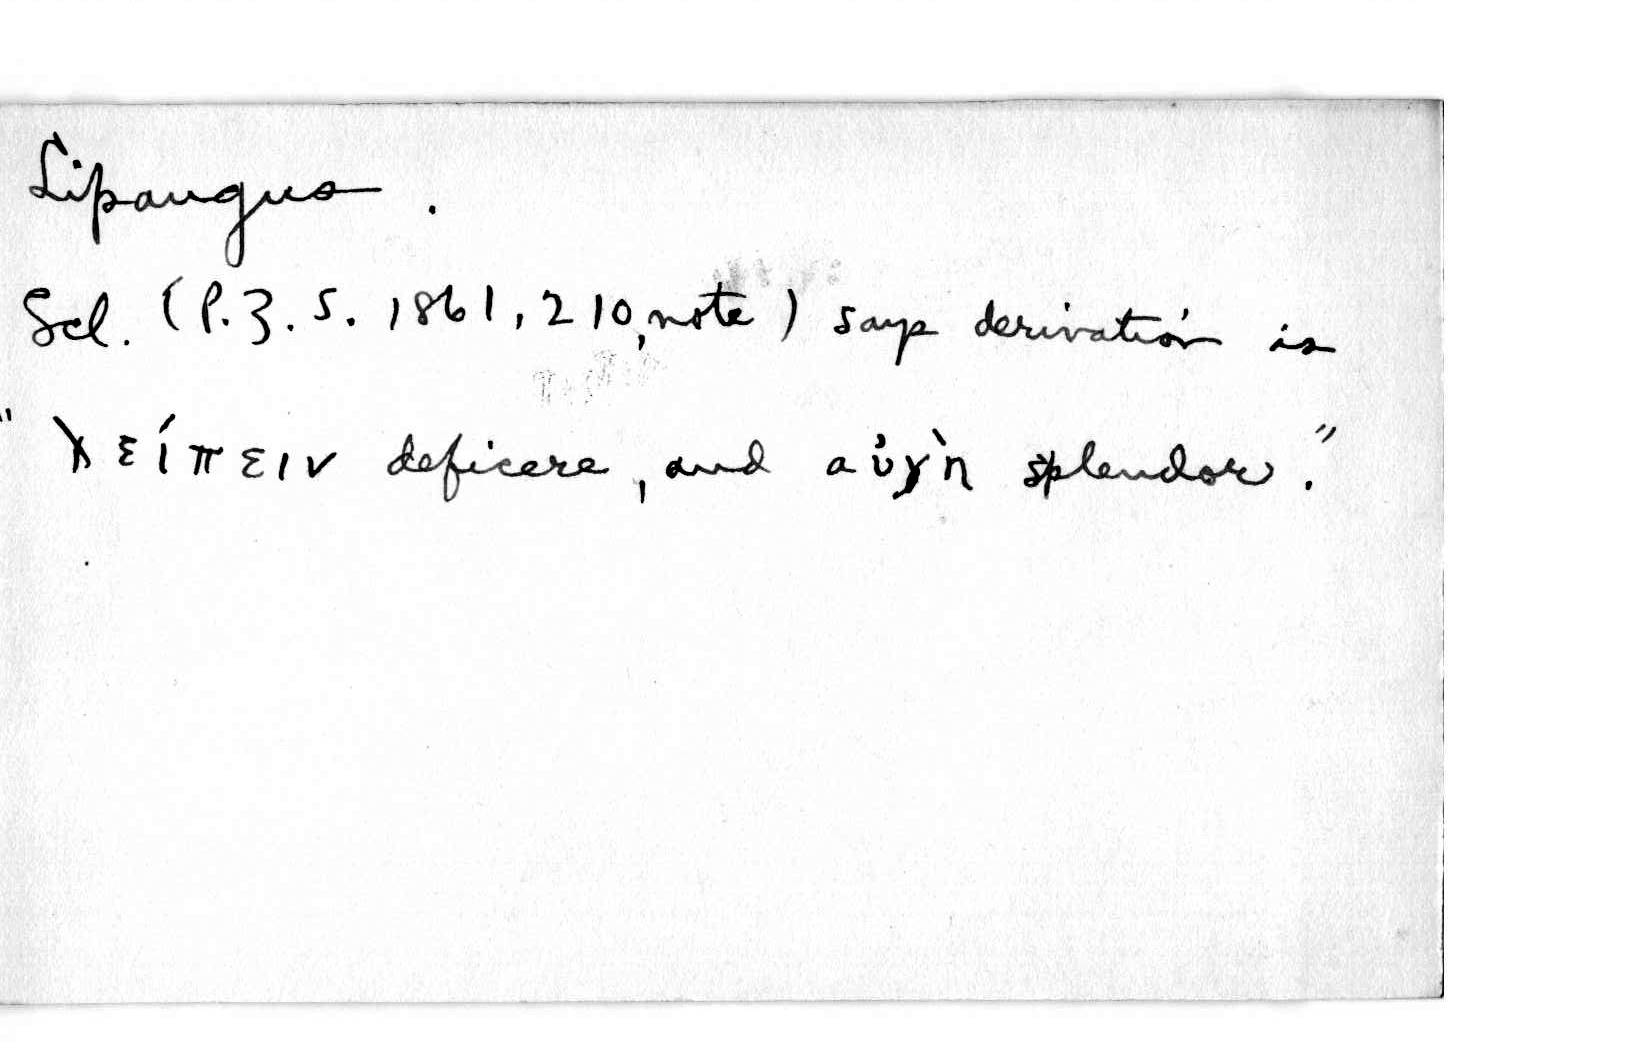 Lipaugus.
Scl. (P.Z.S. 1861, 210, note) says derivation is
"λείπειν deficere, and αὐγὴ splendor."